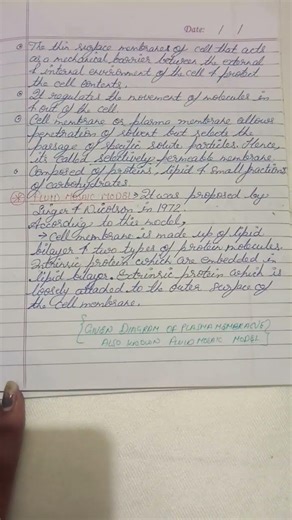 Date: / /
The thin surface membranes of cell that acts
as a mechanical barrier between the external
& internal environment of the cell & protect
the cell contents.
It regulates the movement of molecules in
& out of the cell.
Cell membrane or plasma membrane allows
penetration of solvent but selects the
passage of specific solute particles. Hence,
its called selectively permeable membrane
Composed of proteins, lipid & small fractions
of carbohydrates.
FLUID MOSAIC MODEL: It was proposed by
Singer & Nicolson in 1972.
According to this model,
→ Cell membrane is made up of lipid
bilayer & two types of protein molecules.
Intrinsic protein which are embedded in
lipid bilayer. Extrinsic protein which is
loosely attached to the outer surface of
the cell membrane.
DIAGRAM OF PLASMA MEMBRANE
ALSO KNOWN FLUID MOSAIC MODEL